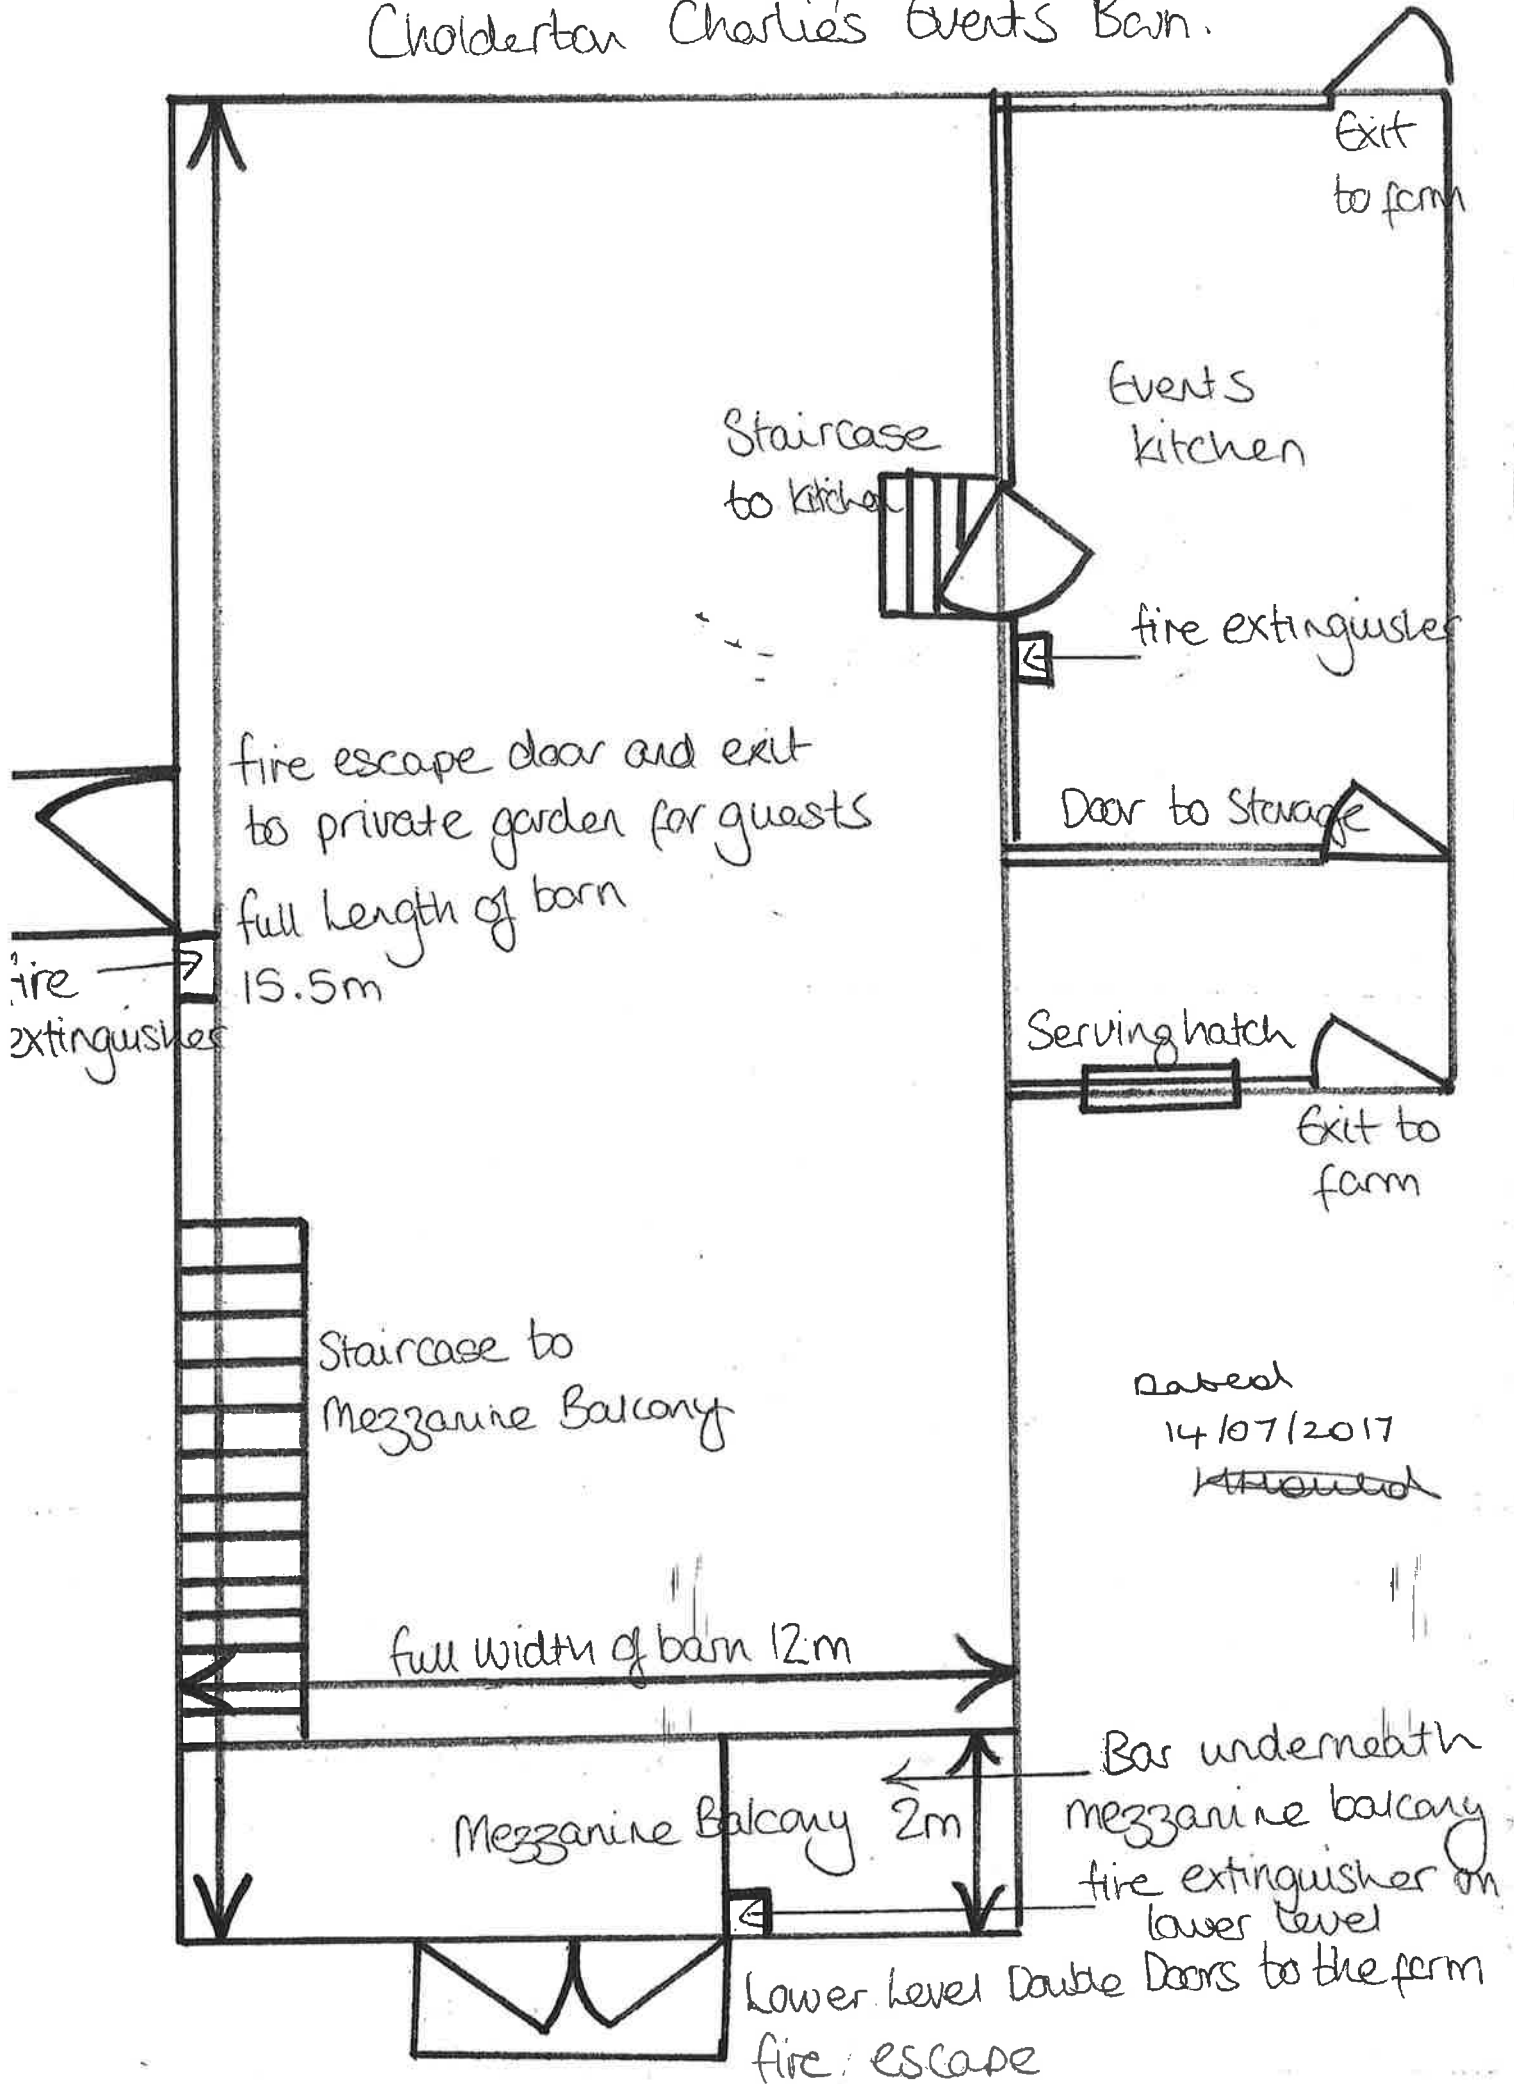 Cholderton Charlie's Events Barn.
Exit
to farm
Events
kitchen
Staircase
to kitchen
fire extinguisher
fire escape door and exit
to private garden for guests
full length of barn
15.5m
fire
extinguisher
Door to Storage
Serving hatch
Exit to
farm
Staircase to
Mezzanine Balcony
Dated
14/07/2017
full width of barn 12m
Mezzanine Balcony 2m
Bar underneath
mezzanine balcony
fire extinguisher on
lower level
Lower Level Double Doors to the farm
fire escape